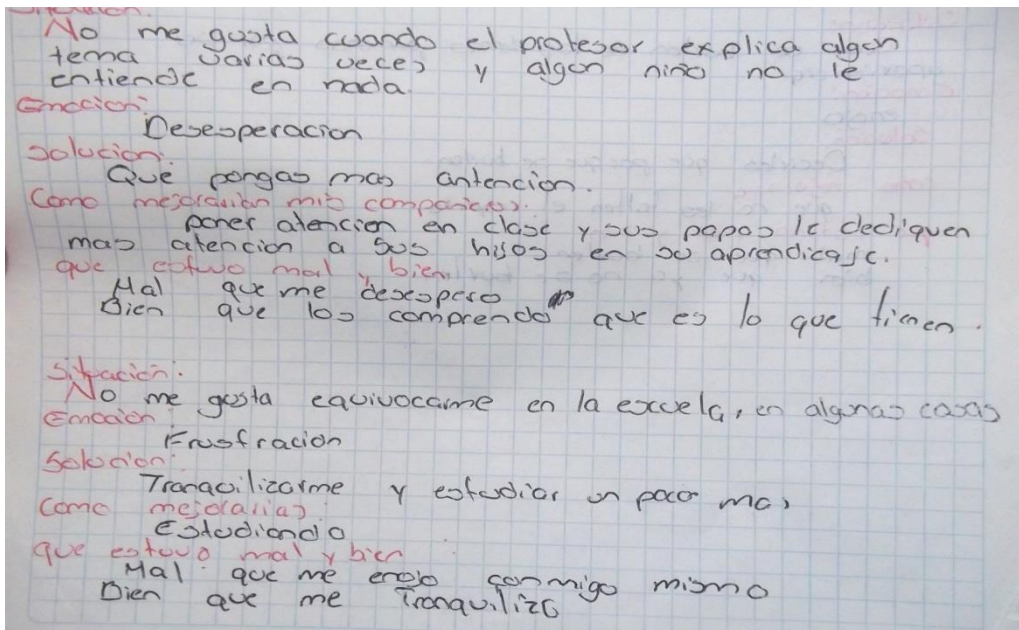 Situacion:
No me gusta cuando el profesor explica algun
tema varias veces y algun niño no le
entiende en nada.
Emocion:
Deseoperacion
Solucion:
Que pongas mas antencion.
Como mejorarian mis compañeros:
poner atencion en clase y sus papas le dediquen
mas atencion a sus hijos en su aprendicaje.
que estuvo mal y bien
Mal que me desespero
Bien que los comprendo que es lo que tienen.
Situacion:
No me gusta equivocarme en la escuela, en algunas cosas
Emocion:
Frustracion
Solucion:
Tranquilizarme y estudiar un poco mas
Como mejorarias
Estudiando
que estuvo mal y bien
Mal que me enojo conmigo mismo
Bien que me Tranquilizo